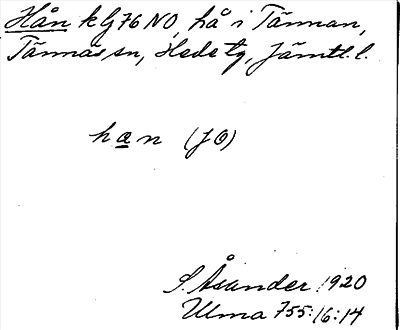 Hån kG76NO, hå i Tännan,
Tännäs sn, Hede tg, Jämtl. l.
han (JÖ)
S. Åsander 1920
Ulma 755:16:14